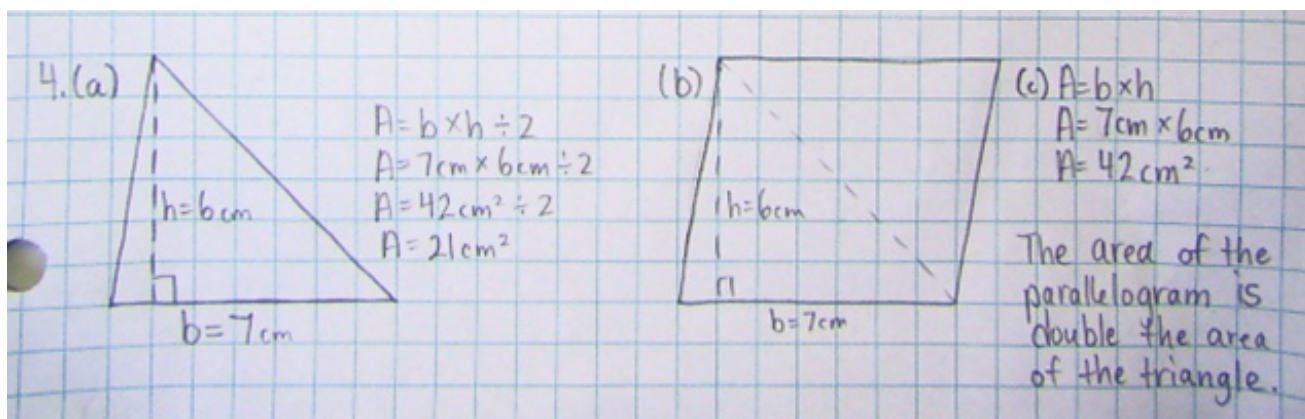 4.(a)
h=6cm
b=7cm
A=b×h÷2
A=7cm×6cm÷2
A=42cm²÷2
A=21cm²
(b)
h=6cm
b=7cm
(c) A=b×h
A=7cm×6cm
A=42cm²
The area of the
parallelogram is
double the area
of the triangle.